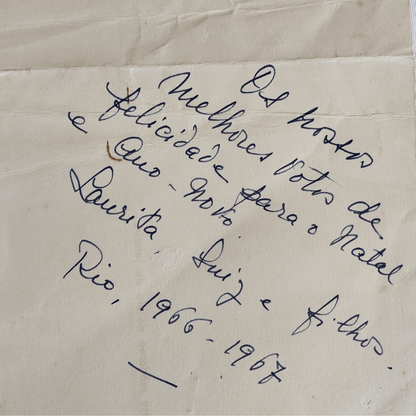 Os nossos
melhores votos de
felicidade para o Natal
e Ano-Novo
Laurita, Luiz e filhos.
Rio, 1966-1967